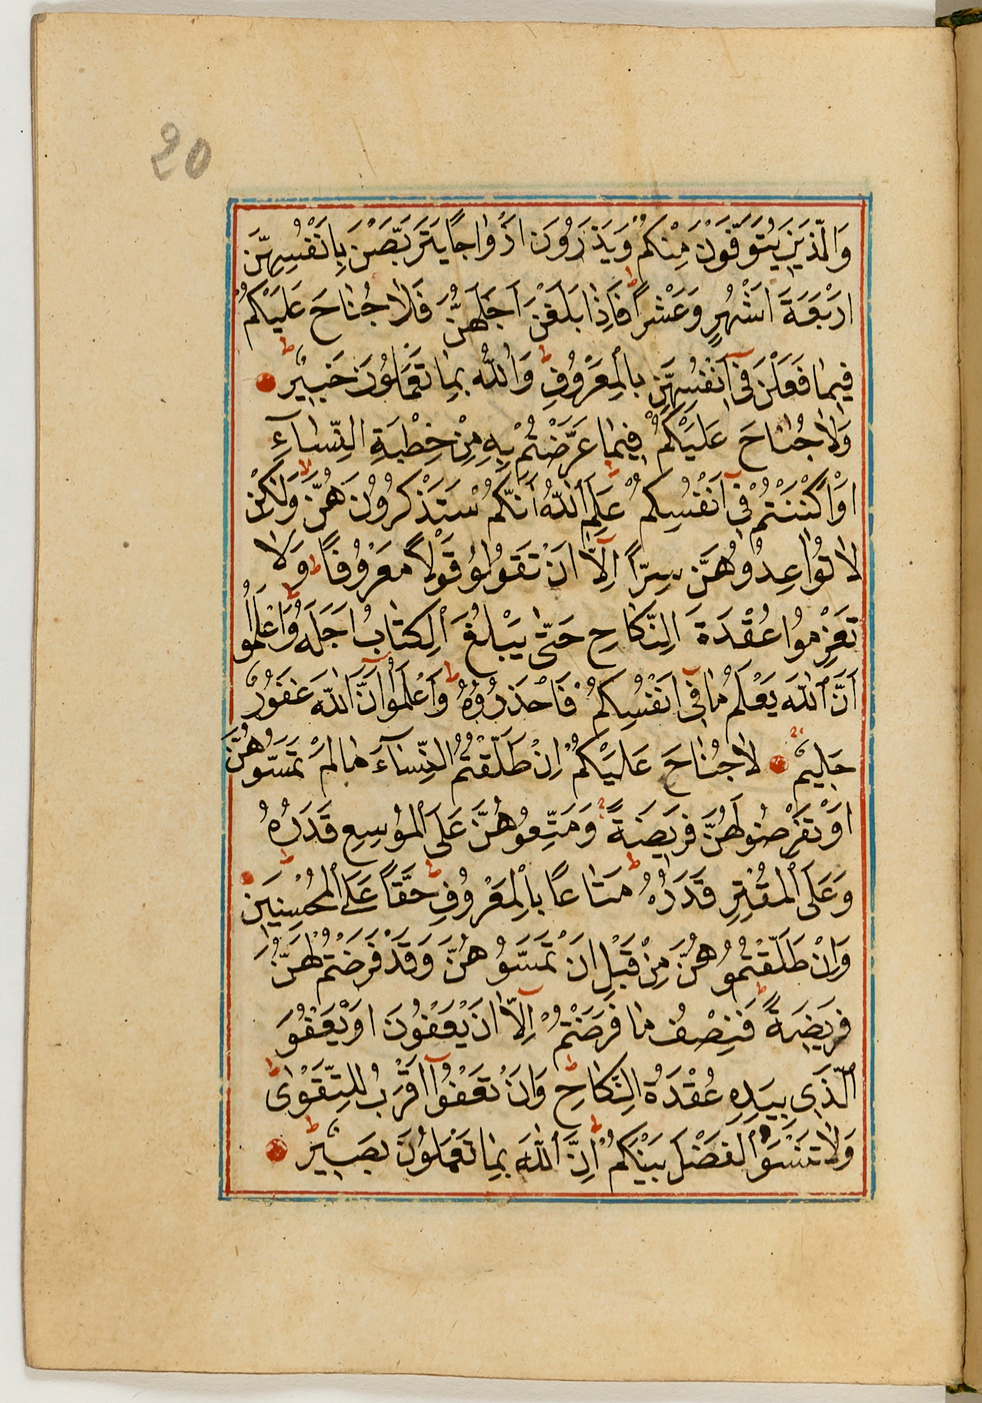 20
وَالَّذ۪ينَ يُتَوَفَّوْنَ مِنْكُمْ وَيَذَرُونَ اَزْوَاجًا يَتَرَبَّصْنَ بِاَنْفُسِهِنَّ
اَرْبَعَةَ اَشْهُرٍ وَعَشْرًا فَاِذَا بَلَغْنَ اَجَلَهُنَّ فَلَا جُنَاحَ عَلَيْكُمْ
ف۪يمَا فَعَلْنَ ف۪ٓي اَنْفُسِهِنَّ بِالْمَعْرُوفِ وَاللّٰهُ بِمَا تَعْمَلُونَ خَب۪يرٌ
وَلَا جُنَاحَ عَلَيْكُمْ ف۪يمَا عَرَّضْتُمْ بِه۪ مِنْ خِطْبَةِ النِّسَٓاءِ
اَوْ اَكْنَنْتُمْ ف۪ٓي اَنْفُسِكُمْ عَلِمَ اللّٰهُ اَنَّكُمْ سَتَذْكُرُونَهُنَّ وَلٰكِنْ
لَا تُوَاعِدُوهُنَّ سِرًّا اِلَّٓا اَنْ تَقُولُوا قَوْلًا مَعْرُوفًا وَلَا
تَعْزِمُوا عُقْدَةَ النِّكَاحِ حَتّٰى يَبْلُغَ الْكِتَابُ اَجَلَهُ وَاعْلَمُٓوا
اَنَّ اللّٰهَ يَعْلَمُ مَا ف۪ٓي اَنْفُسِكُمْ فَاحْذَرُوهُ وَاعْلَمُٓوا اَنَّ اللّٰهَ غَفُورٌ
حَل۪يمٌ لَا جُنَاحَ عَلَيْكُمْ اِنْ طَلَّقْتُمُ النِّسَٓاءَ مَا لَمْ تَمَسُّوهُنَّ
اَوْ تَفْرِضُوا لَهُنَّ فَر۪يضَةً وَمَتِّعُوهُنَّ عَلَى الْمُوسِعِ قَدَرُهُ
وَعَلَى الْمُقْتِرِ قَدَرُهُ مَتَاعًا بِالْمَعْرُوفِ حَقًّا عَلَى الْمُحْسِن۪ينَ
وَاِنْ طَلَّقْتُمُوهُنَّ مِنْ قَبْلِ اَنْ تَمَسُّوهُنَّ وَقَدْ فَرَضْتُمْ لَهُنَّ
فَر۪يضَةً فَنِصْفُ مَا فَرَضْتُمْ اِلَّٓا اَنْ يَعْفُونَ اَوْ يَعْفُوَ
الَّذ۪ي بِيَدِه۪ عُقْدَةُ النِّكَاحِ وَاَنْ تَعْفُٓوا اَقْرَبُ لِلتَّقْوٰى
وَلَا تَنْسَوُا الْفَضْلَ بَيْنَكُمْ اِنَّ اللّٰهَ بِمَا تَعْمَلُونَ بَص۪يرٌ